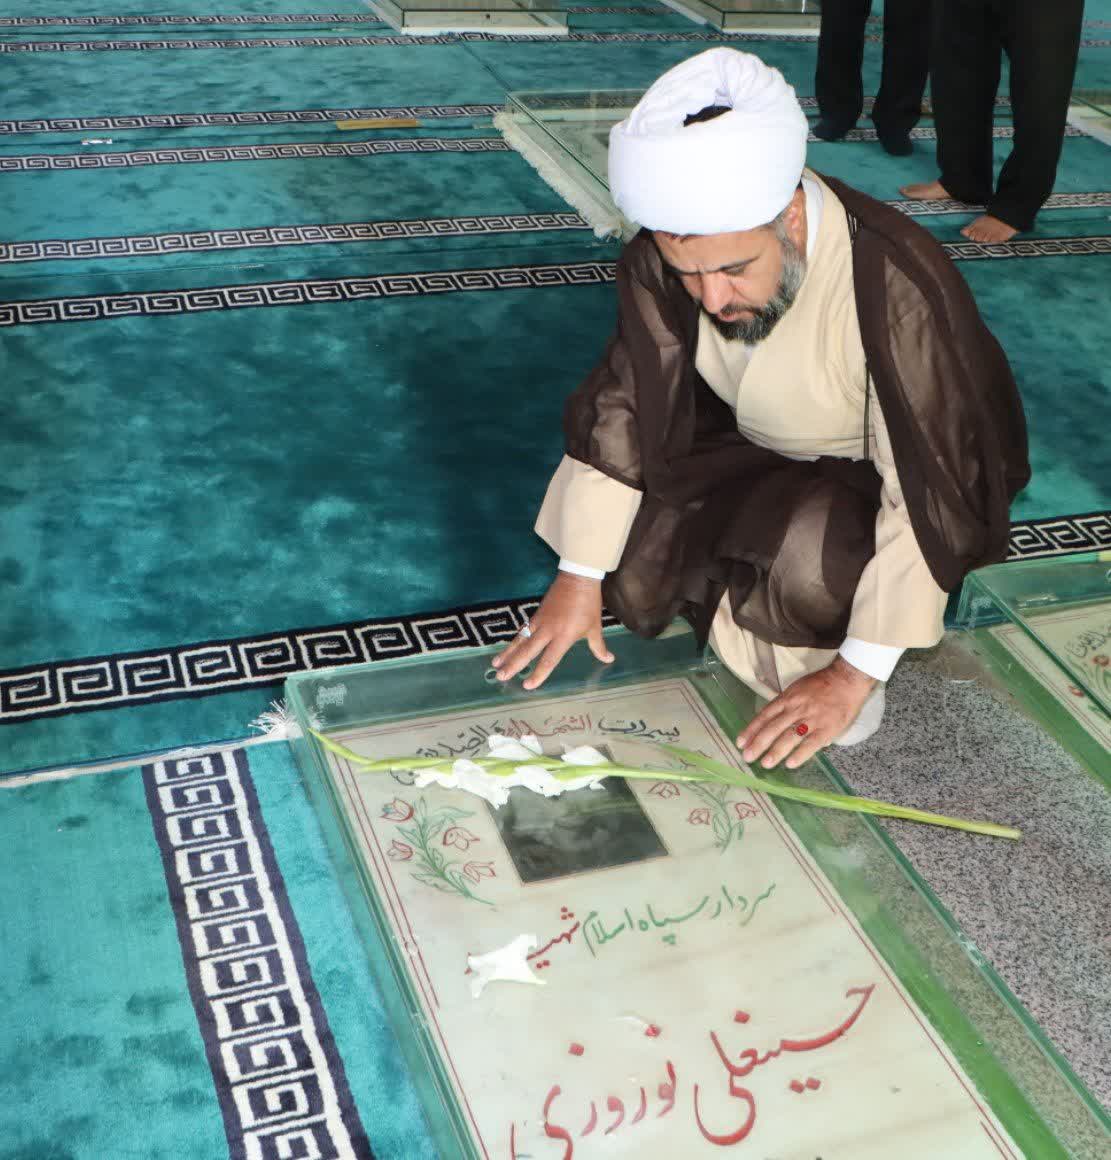 بسم رب الشهداء و الصدیقین
سردار سپاه اسلام شهید
حسینعلی نوروزی